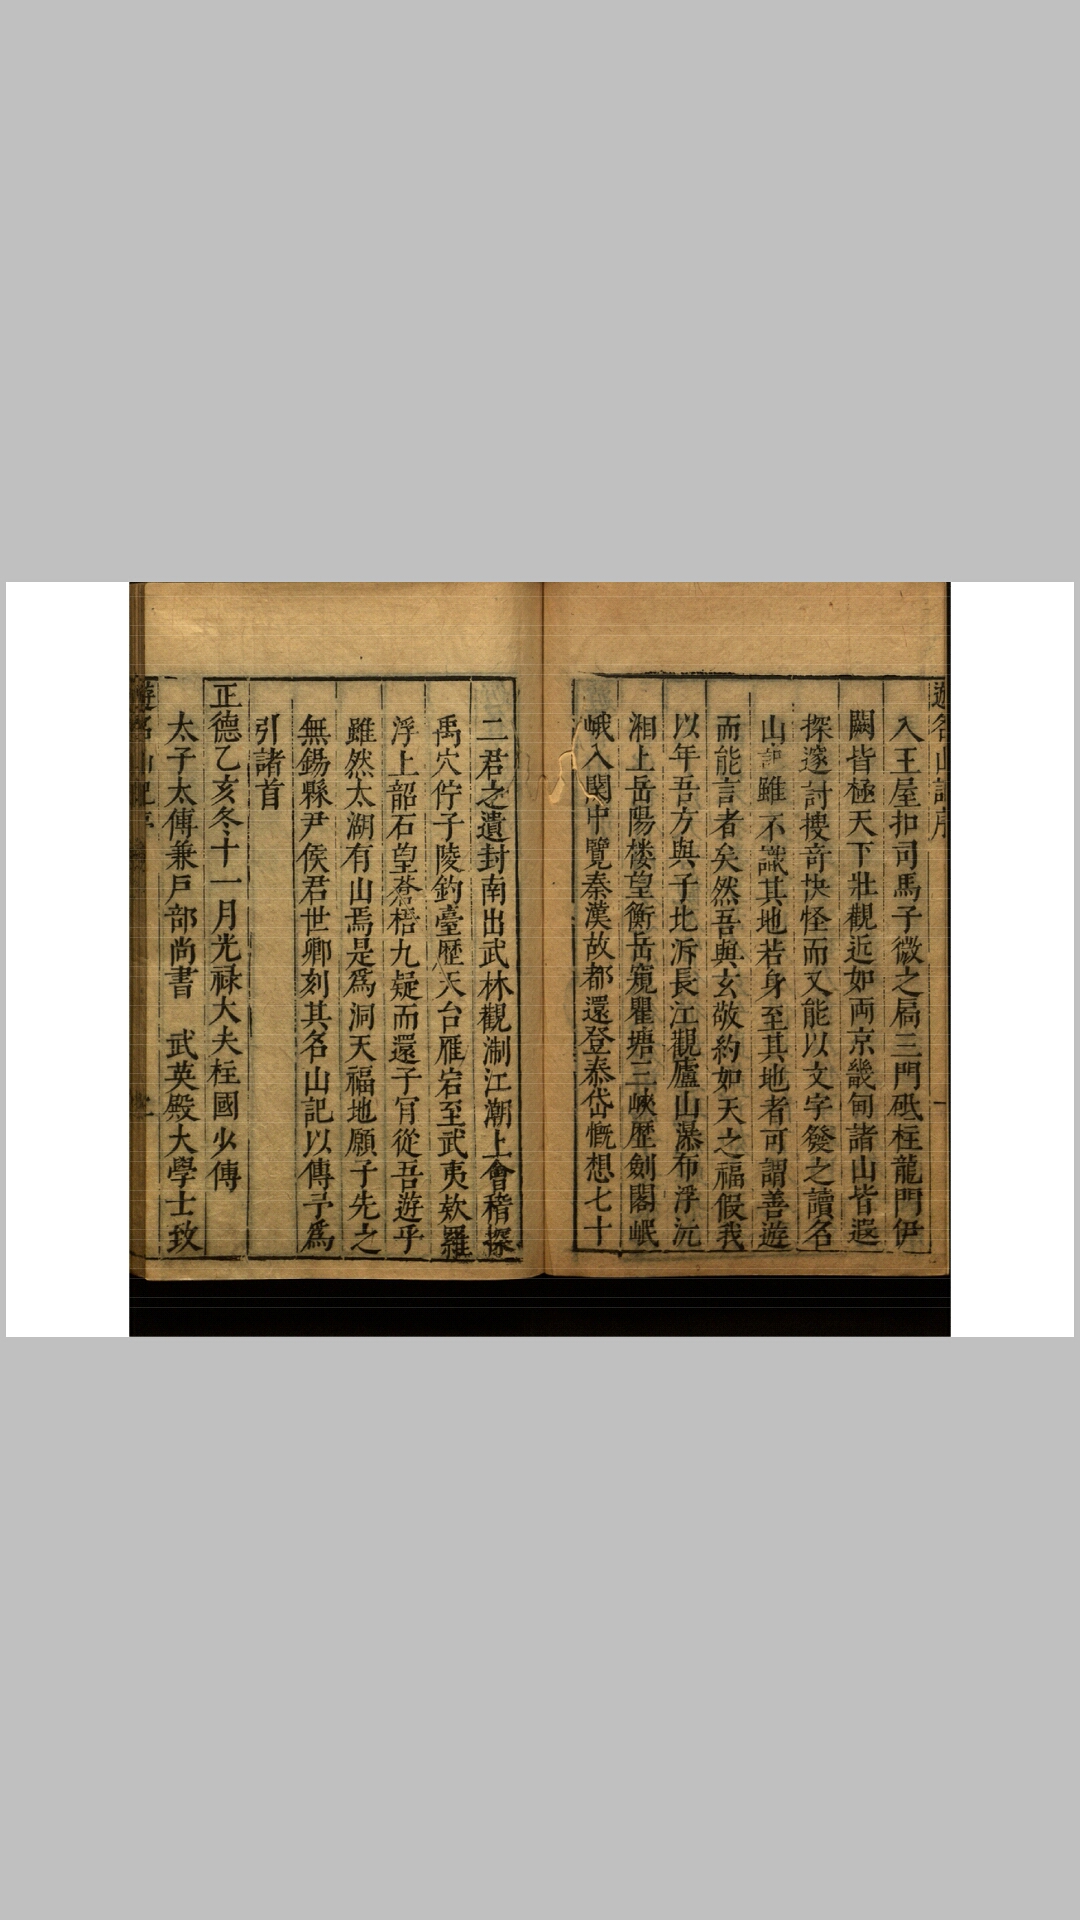 遊名山記序
入王屋扣司馬子微之扃三門砥柱龍門伊
闕皆極天下壯觀近如両京畿甸諸山皆遐
探邃討捜竒抉怪而又能以文字發之讀名
山記雖不識其地若身至其地者可謂善遊
而能言者矣然吾與玄敬約如天之福假我
以年吾方與子北泝長江觀廬山瀑布浮沅
湘上岳陽楼望衡岳窺瞿塘三峽歴劍閣岷
峨入関中覽秦漢故都還登泰岱慨想七十
二君之遺封南出武林觀淛江潮上會稽探
禹穴佇子陵釣臺歴天台雁宕至武夷欸羅
浮上韶石望蒼梧九疑而還子肎從吾遊乎
雖然太湖有山焉是爲洞天福地願子先之
無錫縣尹侯君世卿刻其名山記以傳予爲
引諸首
正德乙亥冬十一月光禄大夫柱國少傳
太子太傳兼戸部尚書 武英殿大學士致
遊名山記序